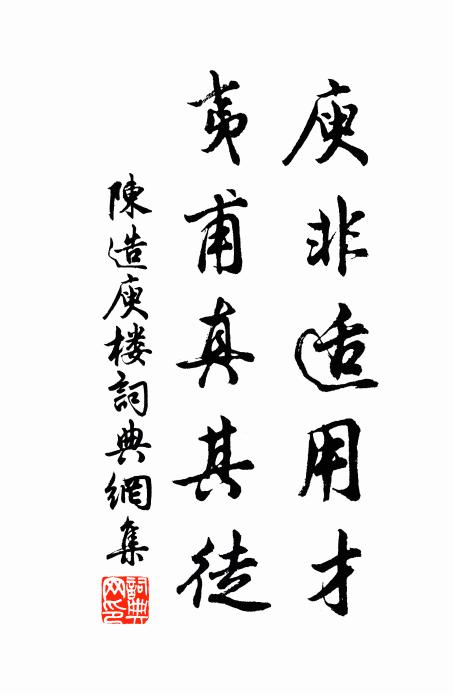 庾非适用才
夷甫真其徒
陳造庾楼詞典網集
詞典网印